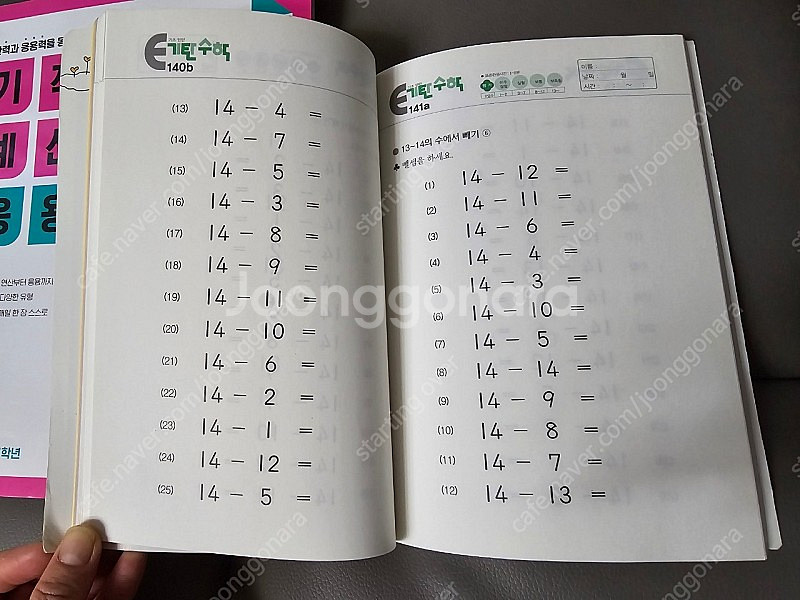 력과 응용력을
기
응용
연산부터 응용까지
다양한 유형
매일 한 장 스스로
학년
기탄수학
140b
(13) 14 - 4 =
(14) 14 - 7 =
(15) 14 - 5 =
(16) 14 - 3 =
(17) 14 - 8 =
(18) 14 - 9 =
(19) 14 - 11 =
(20) 14 - 10 =
(21) 14 - 6 =
(22) 14 - 2 =
(23) 14 - 1 =
(24) 14 - 12 =
(25) 14 - 5 =
E 기탄수학
141a
이름 :
날짜 : 월 일
시간 : : ~ :
13-14의 수에서 빼기 ⑥
뺄셈을 하세요.
(1) 14 - 12 =
(2) 14 - 11 =
(3) 14 - 6 =
(4) 14 - 4 =
(5) 14 - 3 =
(6) 14 - 10 =
(7) 14 - 5 =
(8) 14 - 14 =
(9) 14 - 9 =
(10) 14 - 8 =
(11) 14 - 7 =
(12) 14 - 13 =
Joonggonara
starting over
cafe.naver.com/joonggonara